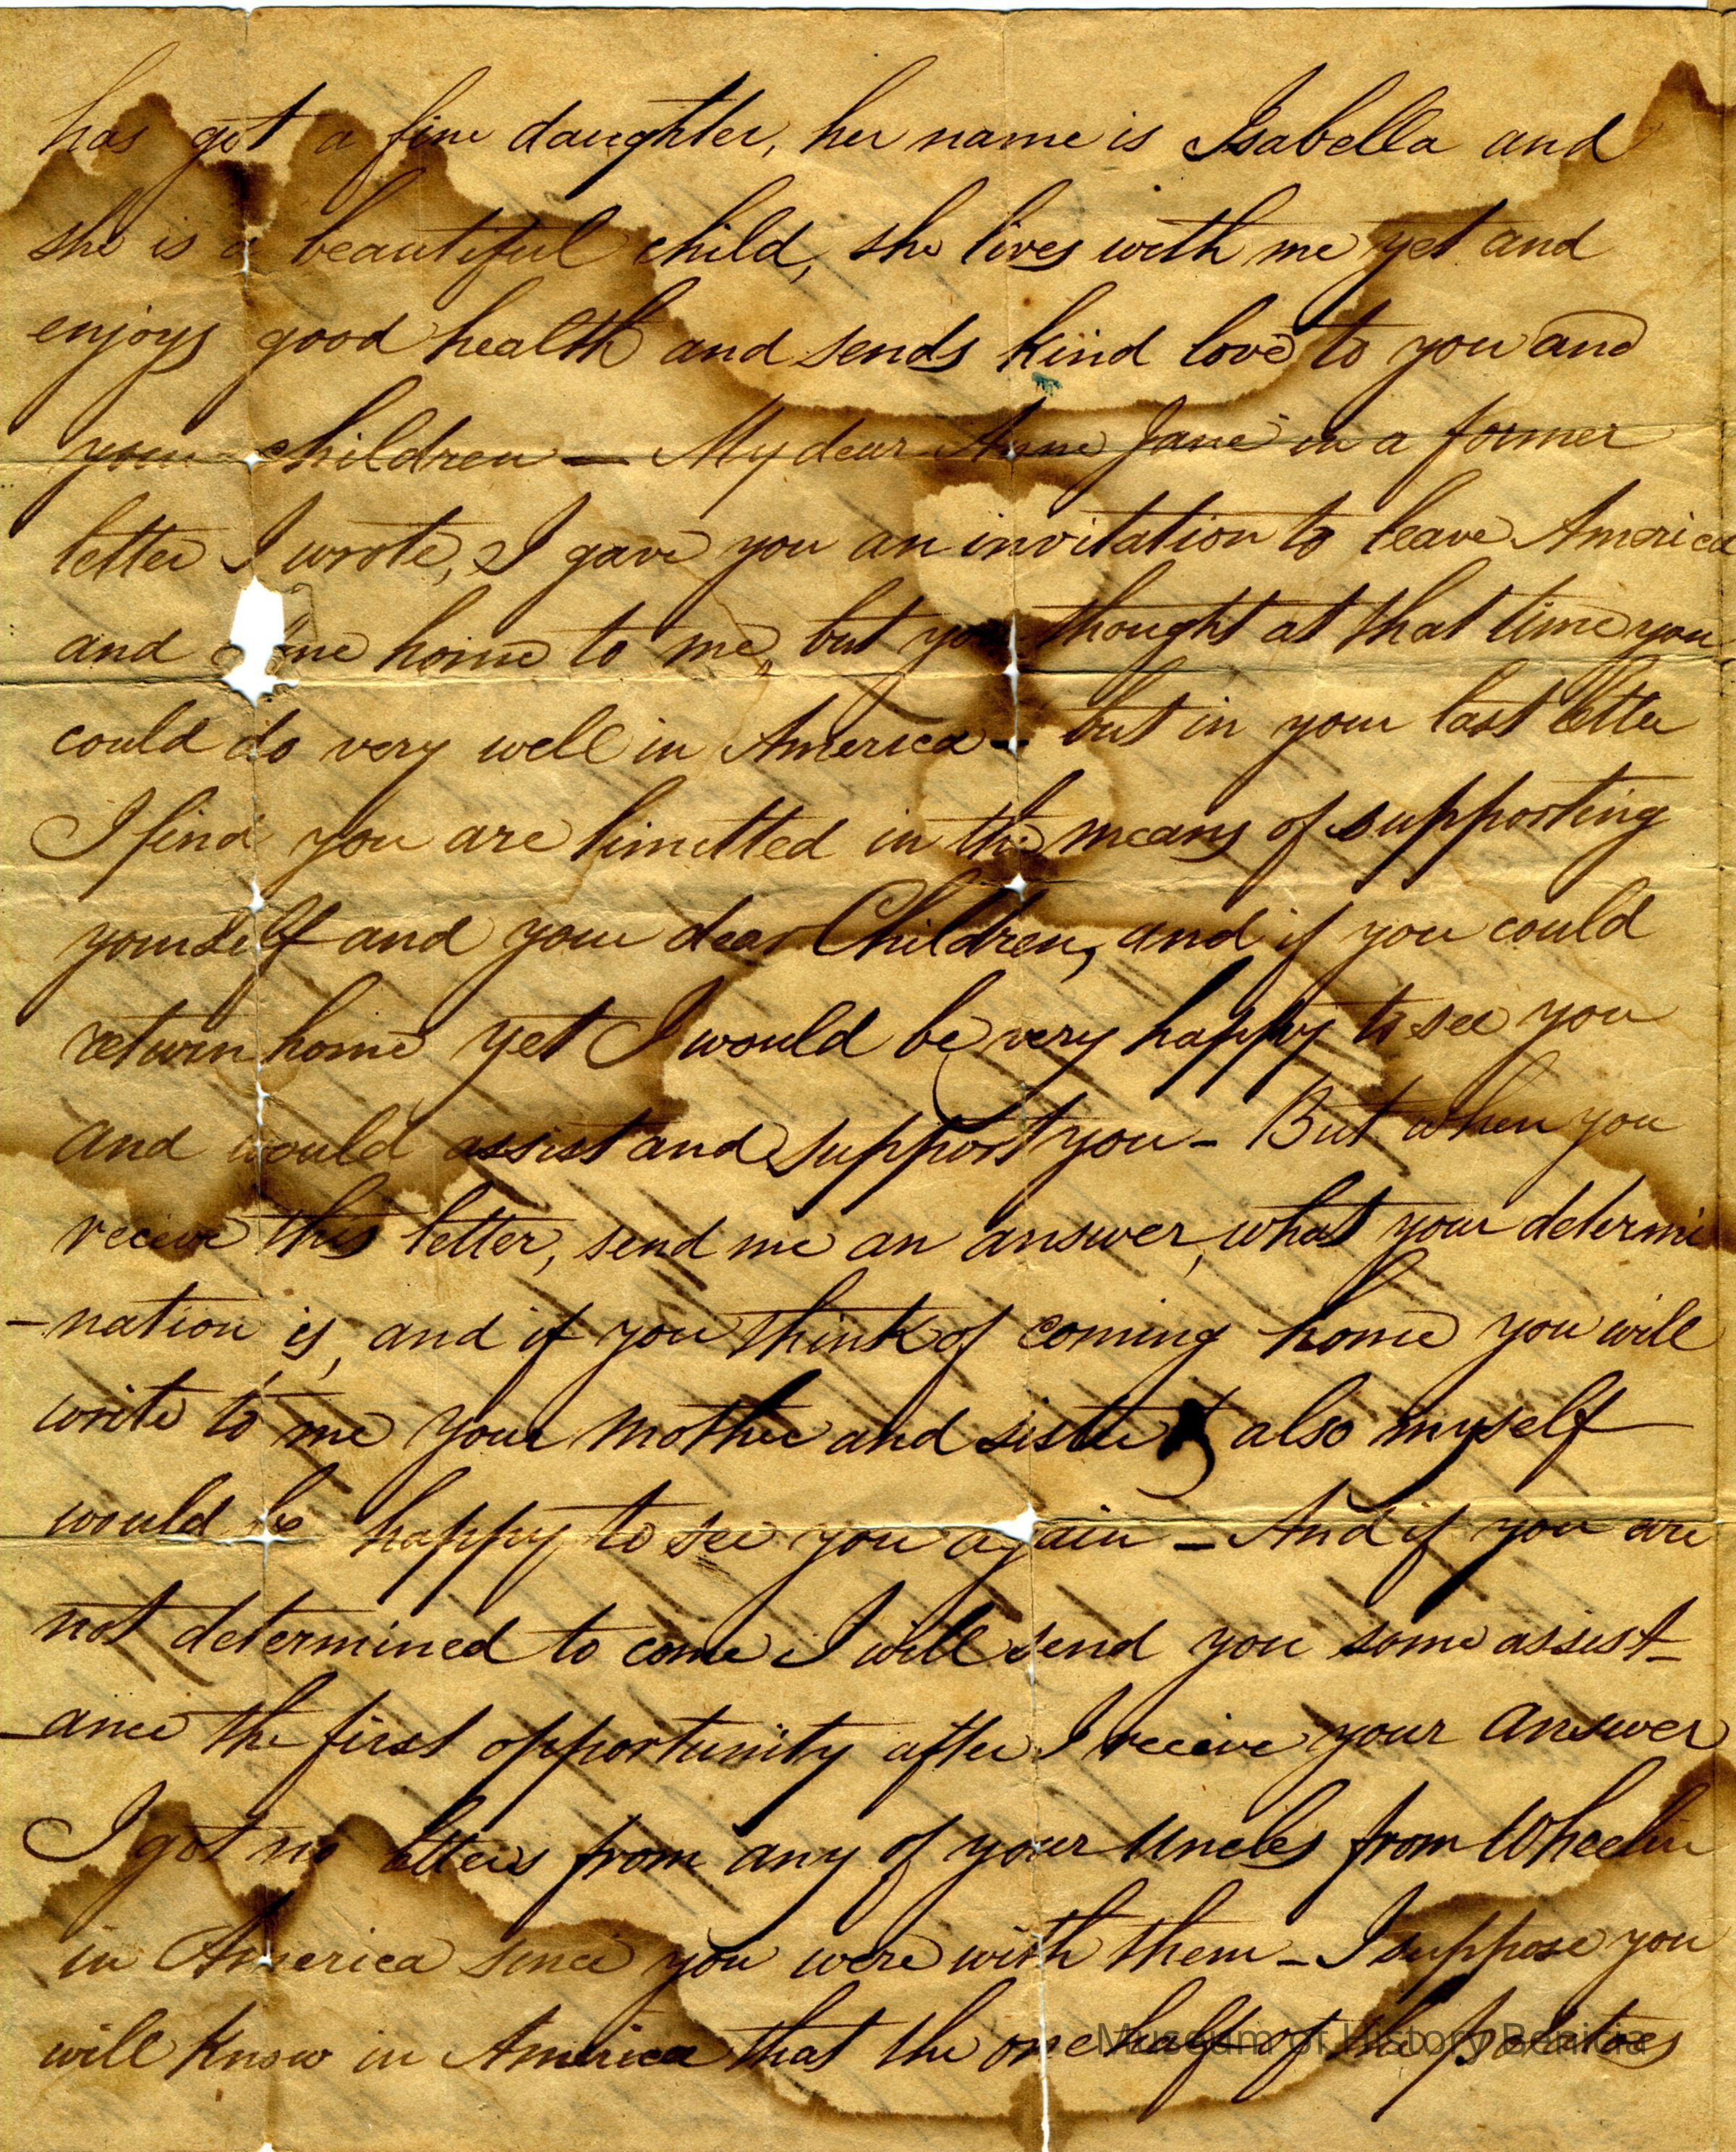 has got a fine daughter, her name is Isabella and
she is a beautiful child, she lives with me yet and
enjoys good health and sends kind love to you and
your children — My dear Anne Jane in a former
letter I wrote, I gave you an invitation to leave America
and come home to me, but you thought at that time you
could do very well in America - but in your last letter
I find you are limitted in the means of supporting
yourself and your dear Children, and if you could
return home yet I would be very happy to see you
and would assist and support you - But when you
receive this letter, send me an answer, what your determi
-nation is, and if you think of coming home you will
write to me your mother and sister also myself
would be happy to see you again - And if you are
not determined to come I will send you some assist-
-ance the first opportunity after I receive your answer
I got no letters from any of your Uncles from Wheelin
in America since you were with them - I suppose you
will know in America that the one half of the potatoes
Museum of History Benicia